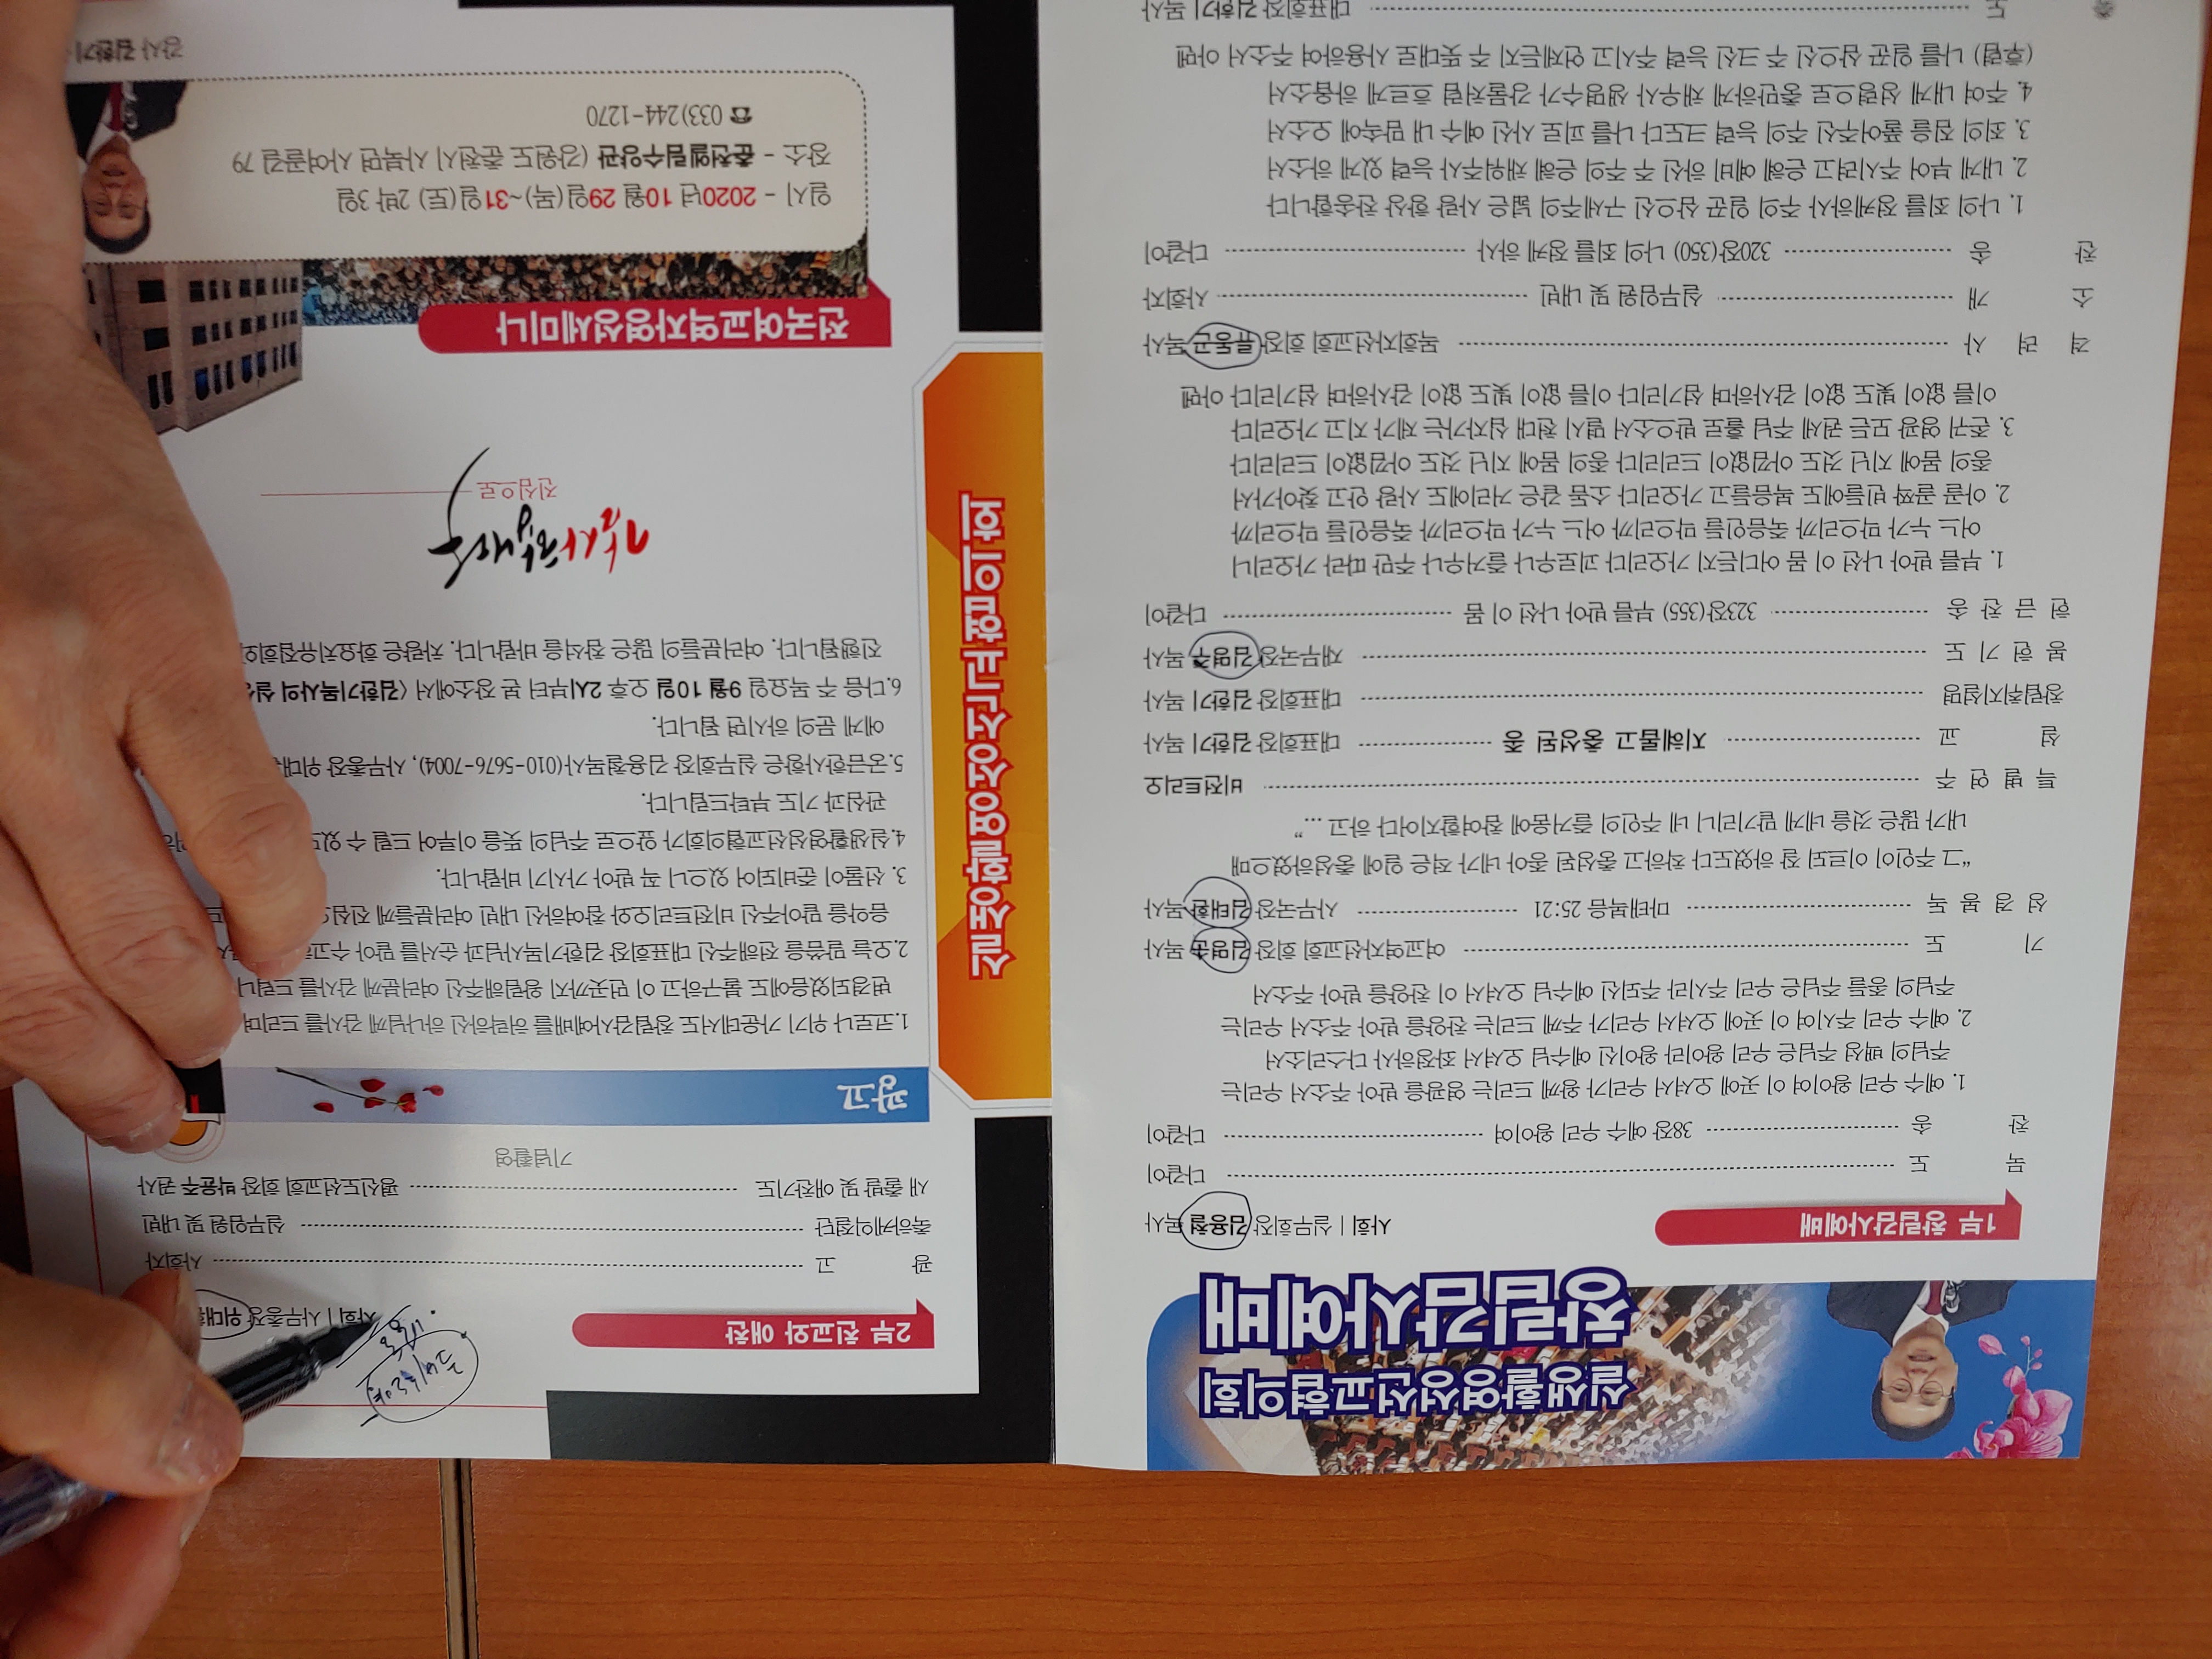 실생활영성선교협의회
창립감사예배
1부 창립감사예배
사회 | 실무회장 김용철 목사
묵 도 다같이
찬 송 38장 예수 우리 왕이여 다같이
1. 예수 우리 왕이여 이 곳에 오셔서 우리가 왕께 드리는 영광을 받아 주소서 우리는
주님의 백성 주님은 우리 왕이라 왕이신 예수님 오셔서 좌정하사 다스리소서
2. 예수 우리 주시여 이 곳에 오셔서 우리가 주께 드리는 찬양을 받아 주소서 우리는
주님의 종들 주님은 우리 주시라 주되신 예수님 오셔서 이 찬양을 받아 주소서
기 도 여교역자선교회 회장 김영순 목사
성 경 봉 독 마태복음 25:21 사무국장 김태환 목사
“그 주인이 이르되 잘 하였도다 착하고 충성된 종아 네가 적은 일에 충성하였으매
내가 많은 것을 네게 맡기리니 네 주인의 즐거움에 참여할지어다 하고 ...”
특 별 연 주 비전트리오
설 교 지혜롭고 충성된 종 대표회장 김한기 목사
창립취지설명 대표회장 김한기 목사
봉 헌 기 도 재무국장 김명주 목사
헌 금 찬 송 323장(355) 부름 받아 나선 이 몸 다같이
1. 부름 받아 나선 이 몸 어디든지 가오리다 괴로우나 즐거우나 주만 따라 가오리니
어느 누가 막으리까 죽음인들 막으리까 어느 누가 막으리까 죽음인들 막으리까
2. 아골 골짝 빈들에도 복음들고 가오리다 소돔 같은 거리에도 사랑 안고 찾아가서
종의 몸에 지닌 것도 아낌없이 드리리다 종의 몸에 지닌 것도 아낌없이 드리리다
3. 존귀 영광 모든 권세 주님 홀로 받으소서 멸시 천대 십자가는 제가 지고 가오리다
이름 없이 빛도 없이 감사하며 섬기리다 이름 없이 빛도 없이 감사하며 섬기리다 아멘
격 려 사 목회자선교회 회장 류동근 목사
소 개 실무임원 및 내빈 사회자
찬 송 320장(350) 나의 죄를 정케 하사 다같이
1. 나의 죄를 정케하사 주의 일꾼 삼으신 구세주의 넓은 사랑 항상 찬송합니다
2. 내게 부어 주시려고 은혜 예비 하신 주 주의 은혜 채워주사 능력 있게 하소서
3. 죄의 짐을 풀어주신 주의 능력 크도다 나를 피로 사신 예수 내 맘속에 오소서
4. 주여 내게 성령으로 충만하게 채우사 생명수가 강물처럼 흐르게 하옵소서
(후렴) 나를 일꾼 삼으신 주 크신 능력 주시고 언제든지 주 뜻대로 사용하여 주소서 아멘
축 도 대표회장 김한기 목사
실생활영성선교협의회
2부 친교와 애찬
사회 | 사무총장 위대
광 고 사회자
축하케익절단 실무임원 및 내빈
새 출발 및 애찬기도 평신도선교회 회장 박윤주 권사
기념촬영
광고
1.코로나 위기 가운데서도 창립감사예배를 허락하신 하나님께 감사를 드리며
변경되었음에도 불구하고 이 먼곳까지 왕림해주신 여러분께 감사를 드립니
2.오늘 말씀을 전해주신 대표회장 김한기목사님과 순서를 맡아 수고
음악을 맡아주신 비전트리오와 참여하신 내빈 여러분들께 진심으
3. 선물이 준비되어 있으니 꼭 받아 가시기 바랍니다.
4.실생활영성선교협의회가 앞으로 주님의 뜻을 이루어 드릴 수 있도
관심과 기도 부탁드립니다.
5.궁금한사항은 실무회장 김용철목사(010-5676-7004), 사무총장 위대
에게 문의 하시면 됩니다.
6.다음 주 목요일 9월 10일 오후 2시부터 본 장소에서 〈김한기목사의 실
진행됩니다. 여러분들의 많은 참석을 바랍니다. 차량은 화요치유집회와
감사합니다
진심으로
전국여교역자영성세미나
일시 - 2020년 10월 29일(목)~31일(토) 2박 3일
장소 - 춘천엘림수양관 (강원도 춘천시 사북면 사여골길 79
☎ 033)244-1270
강사 김한기